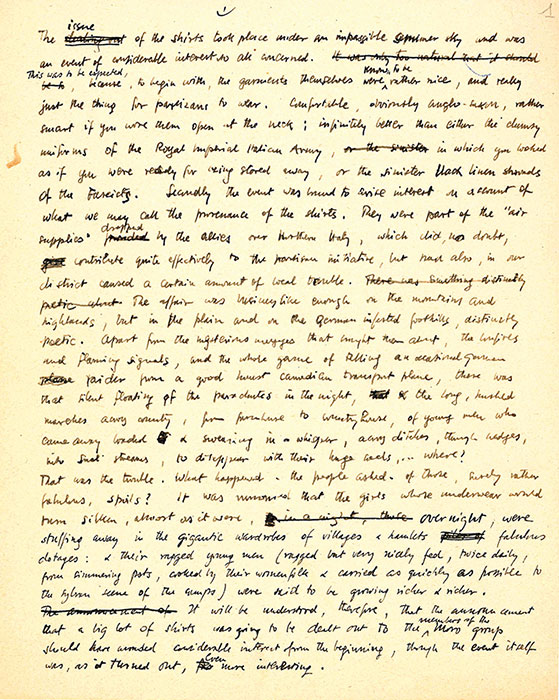 1
issue
The dealing out of the shirts took place under an impassible summer sky and was
an event of considerable interest to all concerned. It was only too natural that it should
This was to be expected,
be so, because, to begin with, the garments themselves were, rather nice, and really
just the thing for partisans to wear. Comfortable, obviously Anglo-Saxon, rather
smart if you wore them open at the neck; infinitely better than either the clumsy
uniforms of the Royal Imperial Italian Army, or the sinister in which you looked
as if you were ready for being stored away, or the sinister black linen shrouds
of the Fascists. Secondly the event was bound to arise interest on account of
what we may call the provenance of the shirts. They were part of the "air
dropped
supplies" provided by the allies over Northern Italy, which did, no doubt,
contribute quite effectively to the partisan initiative, but had also, in our
district caused a certain amount of local trouble. There was something distinctly
poetic about The affair was businesslike enough on the mountains and
highlands, but in the plain and on the German infested foothills, distinctly
poetic. Apart from the mysterious messages that brought them about, the bonfires
and flaming signals, and the whole game of telling an occasional German
plane raider from a good honest Canadian transport plane, there was
that silent floating of the parachutes in the night, that & the long, hushed
marches across country, from farmhouse to country house, of young men who
came away loaded & swearing in a whisper, across ditches, through hedges,
into small streams, to disappear with their huge sacks,... where?
That was the trouble. What happened - the people asked - of those, surely rather
fabulous, spoils? It was rumoured that the girls whose underwear would
turn silken, almost as it were, in a night, those overnight, were
stuffing away in the gigantic wardrobes of villages & hamlets fabulous
dotages: & their ragged young men (ragged but very nicely fed, twice daily,
from simmering pots, cooked by their womenfolk & carried as quickly as possible to
the sylvan scene of the camps) were said to be growing richer & richer.
The announcement of It will be understood, therefore, that the announcement
members of the
that a big lot of shirts was going to be dealt out to the group
should have aroused considerable interest from the beginning, though the event itself
even
was, as it turned out, more interesting.